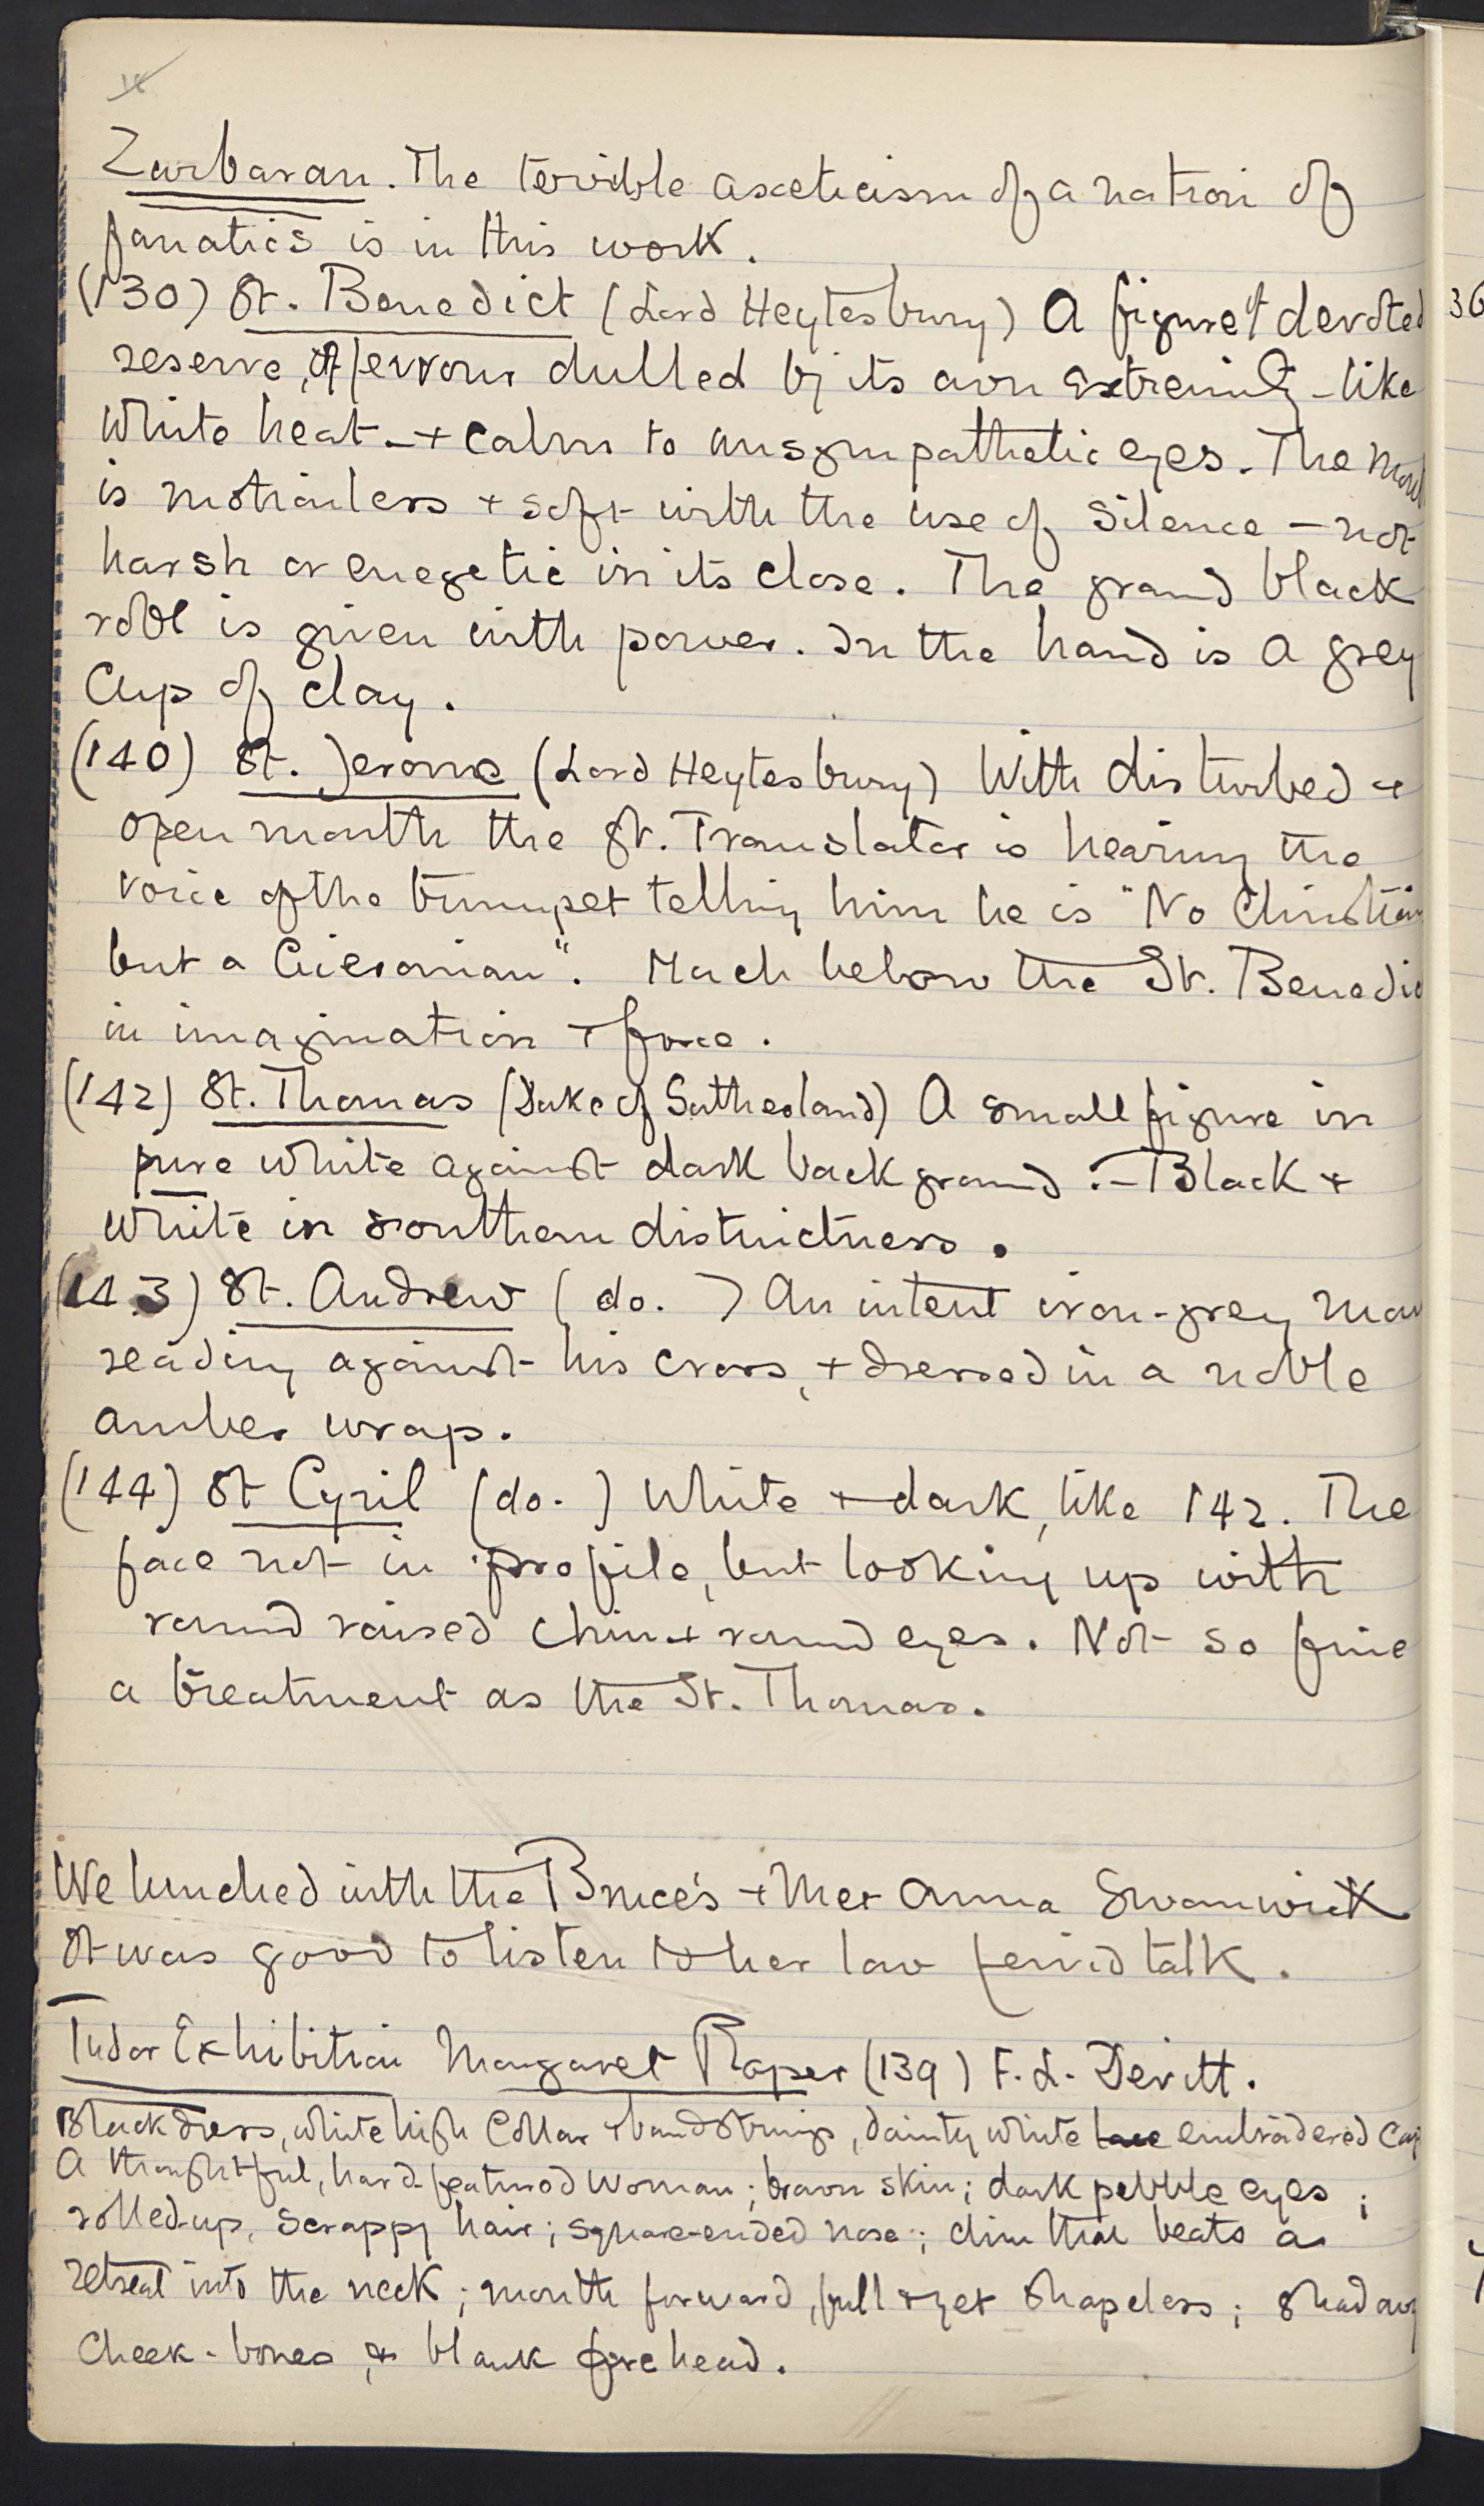 Zurbaran. The terrible asceticism of a nation of
fanatics is in this work.
(130) St. Benedict (Lord Heytesbury) A figure of devoted
reserve, of fervour dulled by its own extremity - like
white heat - + calm to unsympathetic eyes. The mouth
is motionless + soft with the use of silence - not
harsh or enegetic in its close. The grand black
robe is given with power. In the hand is a grey
cup of clay.
(140) St. Jerome (Lord Heytesbury) With disturbed +
open mouth the gt. Translator is hearing the
voice of the trumpet telling him he is "No Christian
but a Ciceronian". Much below the St. Benedic
in imagination + force.
(142) St. Thomas (Duke of Sutherland) A small figure in
pure white against dark background :- Black +
white in southern distinctness.
(143) St. Andrew (do. ) An intent iron-grey man
reading against his cross, + dressed in a noble
amber wrap.
(144) St Cyril (do. ) White + dark, like 142. The
face not in profile, but looking up with
round raised chin + round eyes. Not so fine
a treatment as the St. Thomas.
We lunched with the Bruce's + met Anna Swanwick
It was good to listen to her low fervid talk.
Tudor Exhibition Margaret Roper (139) F. L. Devitt.
Black dress, white high collar + band strings, dainty white lace embroidered cap
A thoughtful, hard-featured woman; brown skin; dark pebble eyes;
rolled-up, scrappy hair; square-ended nose; chin that beats a
retreat into the neck; mouth forward, full + yet shapeless; shadowy
cheek-bones, + blank forehead.
36